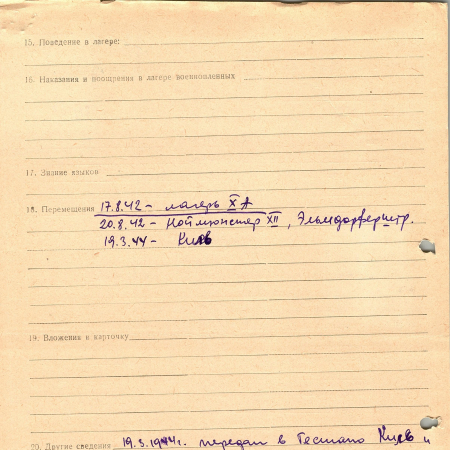 15. Поведение в лагере:
16. Наказания и поощрения в лагере военнопленных
17. Знание языков
18. Перемещения 17.8.42 – лагерь X A
20.8.42 – Ноймюнстер XII, Эльмдорферстр.
19.3.44 – Киль
19. Вложения к карточку
20. Другие сведения 19.3.1944г. передан в Гестапо и